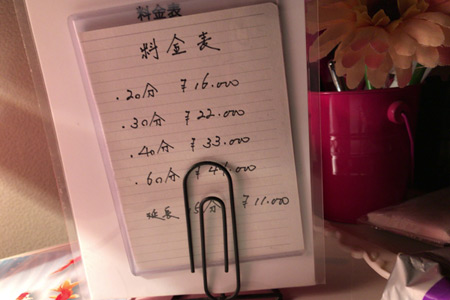 料金表
料金表
・20分 ¥16.000
・30分 ¥22.000
・40分 ¥33.000
・60分
延長 分 ¥11.000